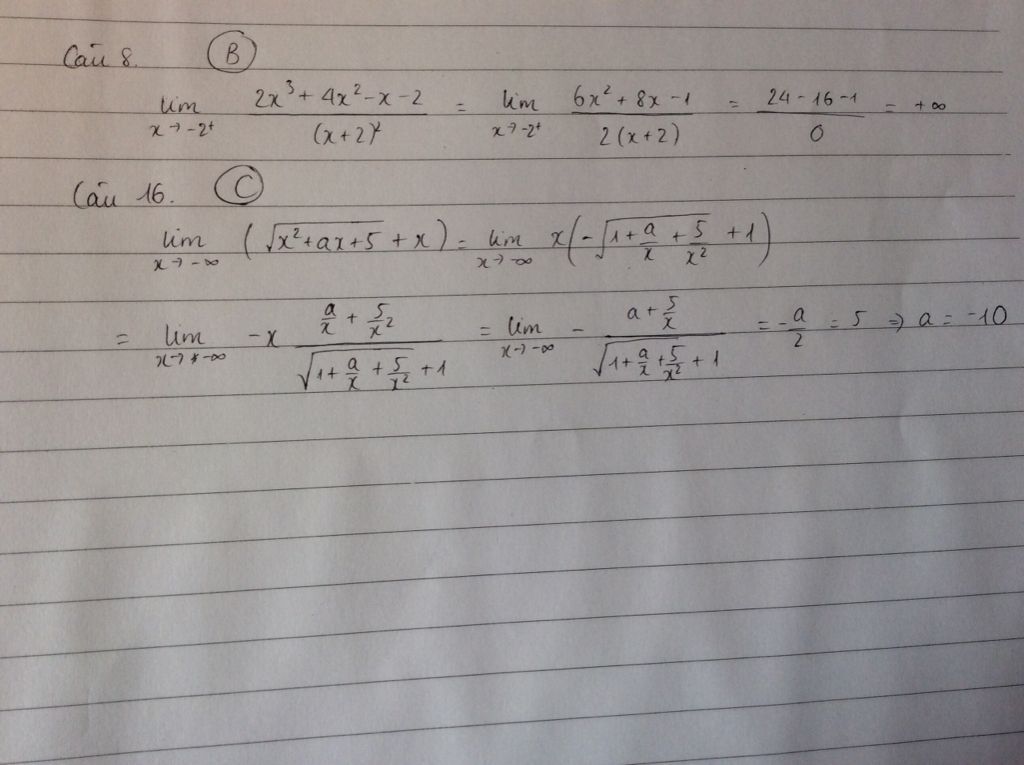 Câu 8. B
lim x→-2⁺ (2x³ + 4x² - x - 2)/(x+2)² = lim x→-2⁺ (6x² + 8x - 1)/(2(x+2)) = (24 - 16 - 1)/0 = +∞
Câu 16. C
lim x→-∞ (√(x²+ax+5) + x) = lim x→-∞ x(-√(1 + a/x + 5/x²) + 1)
= lim x→-∞ -x (a/x + 5/x²)/(√(1 + a/x + 5/x²) + 1) = lim x→-∞ - (a + 5/x)/(√(1 + a/x + 5/x²) + 1) = -a/2 = 5 ⇒ a = -10